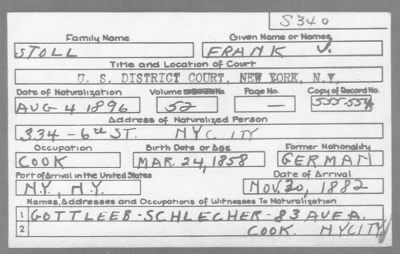 S340
Family Name Given Name or Names
STOLL FRANK J.
Title and Location of Court
U. S. DISTRICT COURT, NEW YORK, N.Y.
Date of Naturalization Volume Page No. Copy of Record No.
AUG 4 1896 52 —
Address of Naturalized Person
334-6th ST. NYCITY
Occupation Birth Date or Age Former Nationality
COOK MAR. 24, 1858 GERMAN
Port of Arrival in the United States Date of Arrival
N.Y., N.Y. NOV. 20, 1882
Names, Addresses and Occupations of Witnesses To Naturalization
1 GOTTLEEB-SCHLECHER-83 AVE A.
2 COOK. NYCITY